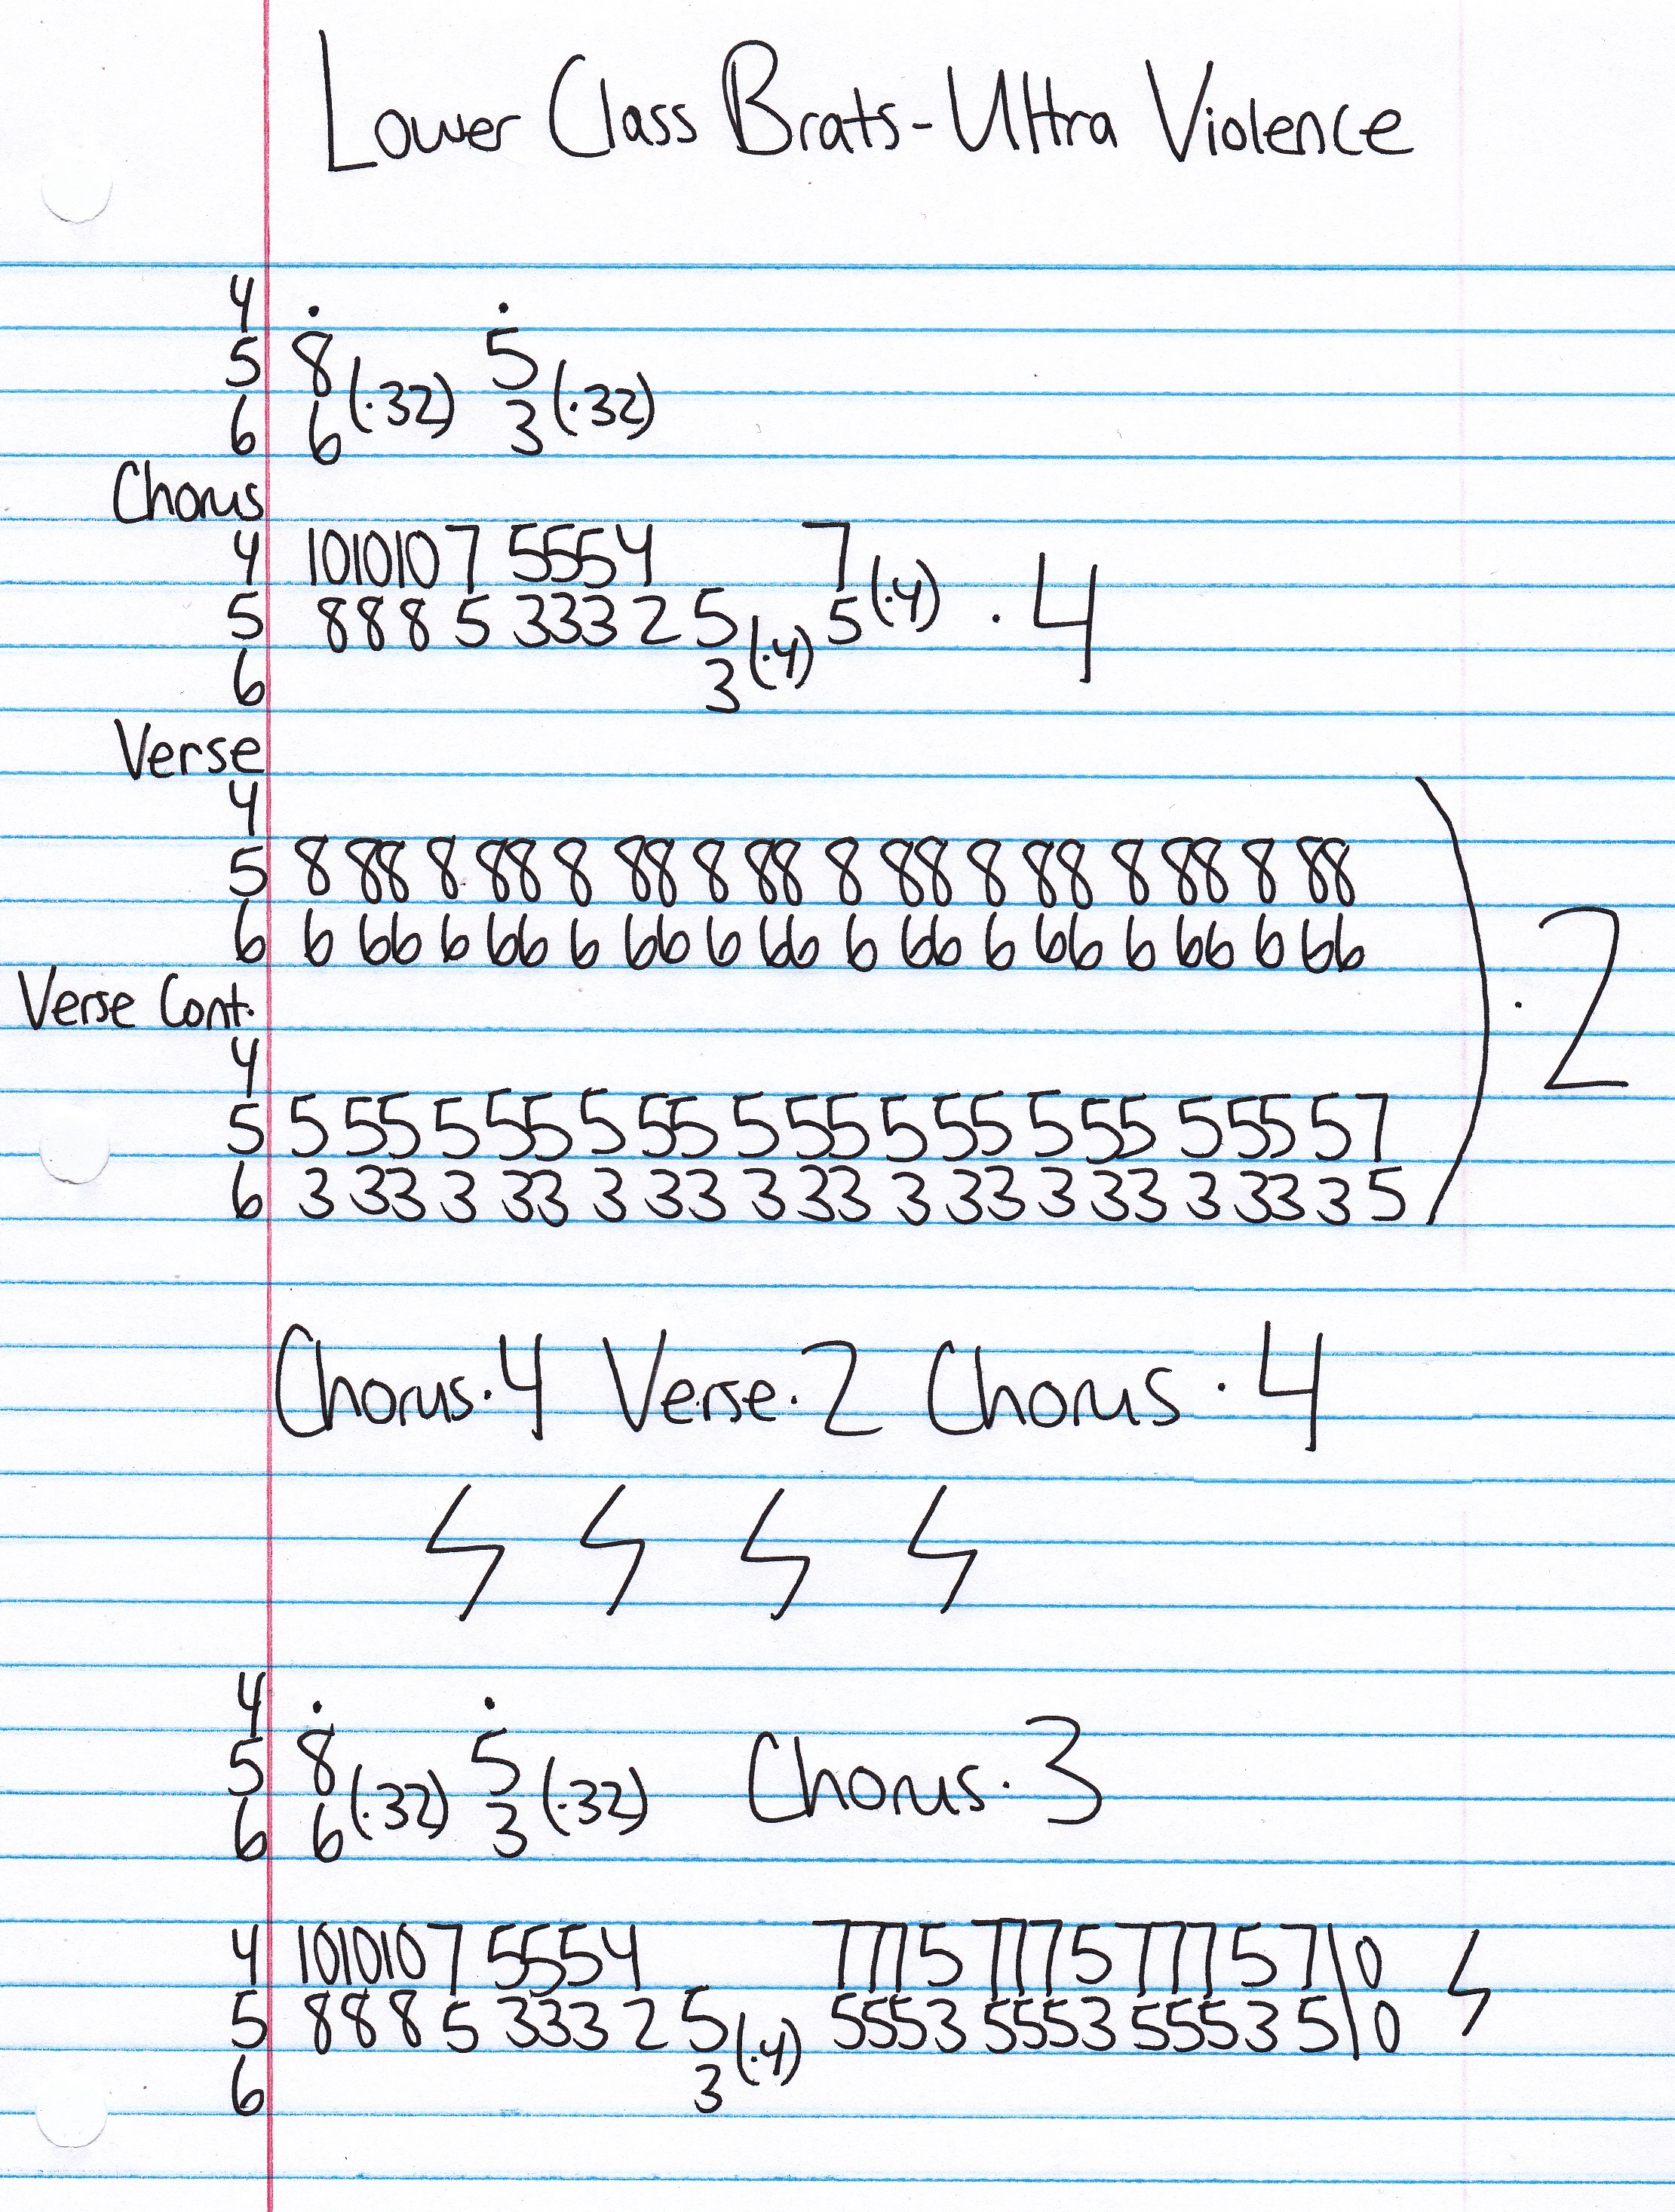 Lower Class Brats - Ultra Violence
4 . .
5 8 5
6 6 (·32) 3 (·32)
Chorus
4 10 10 10 7 5 5 5 4 7
5 8 8 8 5 3 3 3 2 5 5 (·4) · 4
6 3 (·4)
Verse
4
5 8 88 8 88 8 88 8 88 8 88 8 88 8 88 8 88
6 6 66 6 66 6 66 6 66 6 66 6 66 6 66 6 66
Verse Cont.
4
5 5 55 5 55 5 55 5 55 5 55 5 55 5 55 5 7
6 3 33 3 33 3 33 3 33 3 33 3 33 3 33 3 5
) · 2
Chorus · 4 Verse · 2 Chorus · 4
4 . .
5 8 5 Chorus · 3
6 6 (·32) 3 (·32)
4 10 10 10 7 5 5 5 4 7 7 7 5 7 7 7 5 7 7 7 5 7 \ 0
5 8 8 8 5 3 3 3 2 5 5 5 5 3 5 5 5 3 5 5 5 3 5 \ 0
6 3 (·4)